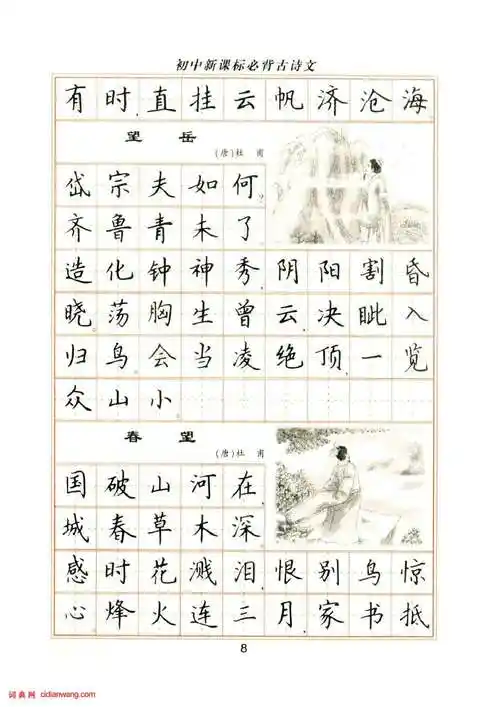 初中新课标必背古诗文
有时直挂云帆济沧海
望 岳
(唐)杜 甫
岱宗夫如何?
齐鲁青未了
造化钟神秀,阴阳割昏
晓。荡胸生曾云,决眦入
归鸟。会当凌绝顶,一览
众山小
春 望
(唐)杜 甫
国破山河在,
城春草木深
感时花溅泪,恨别鸟惊
心。烽火连三月,家书抵
8
词典网 cidianwang.com